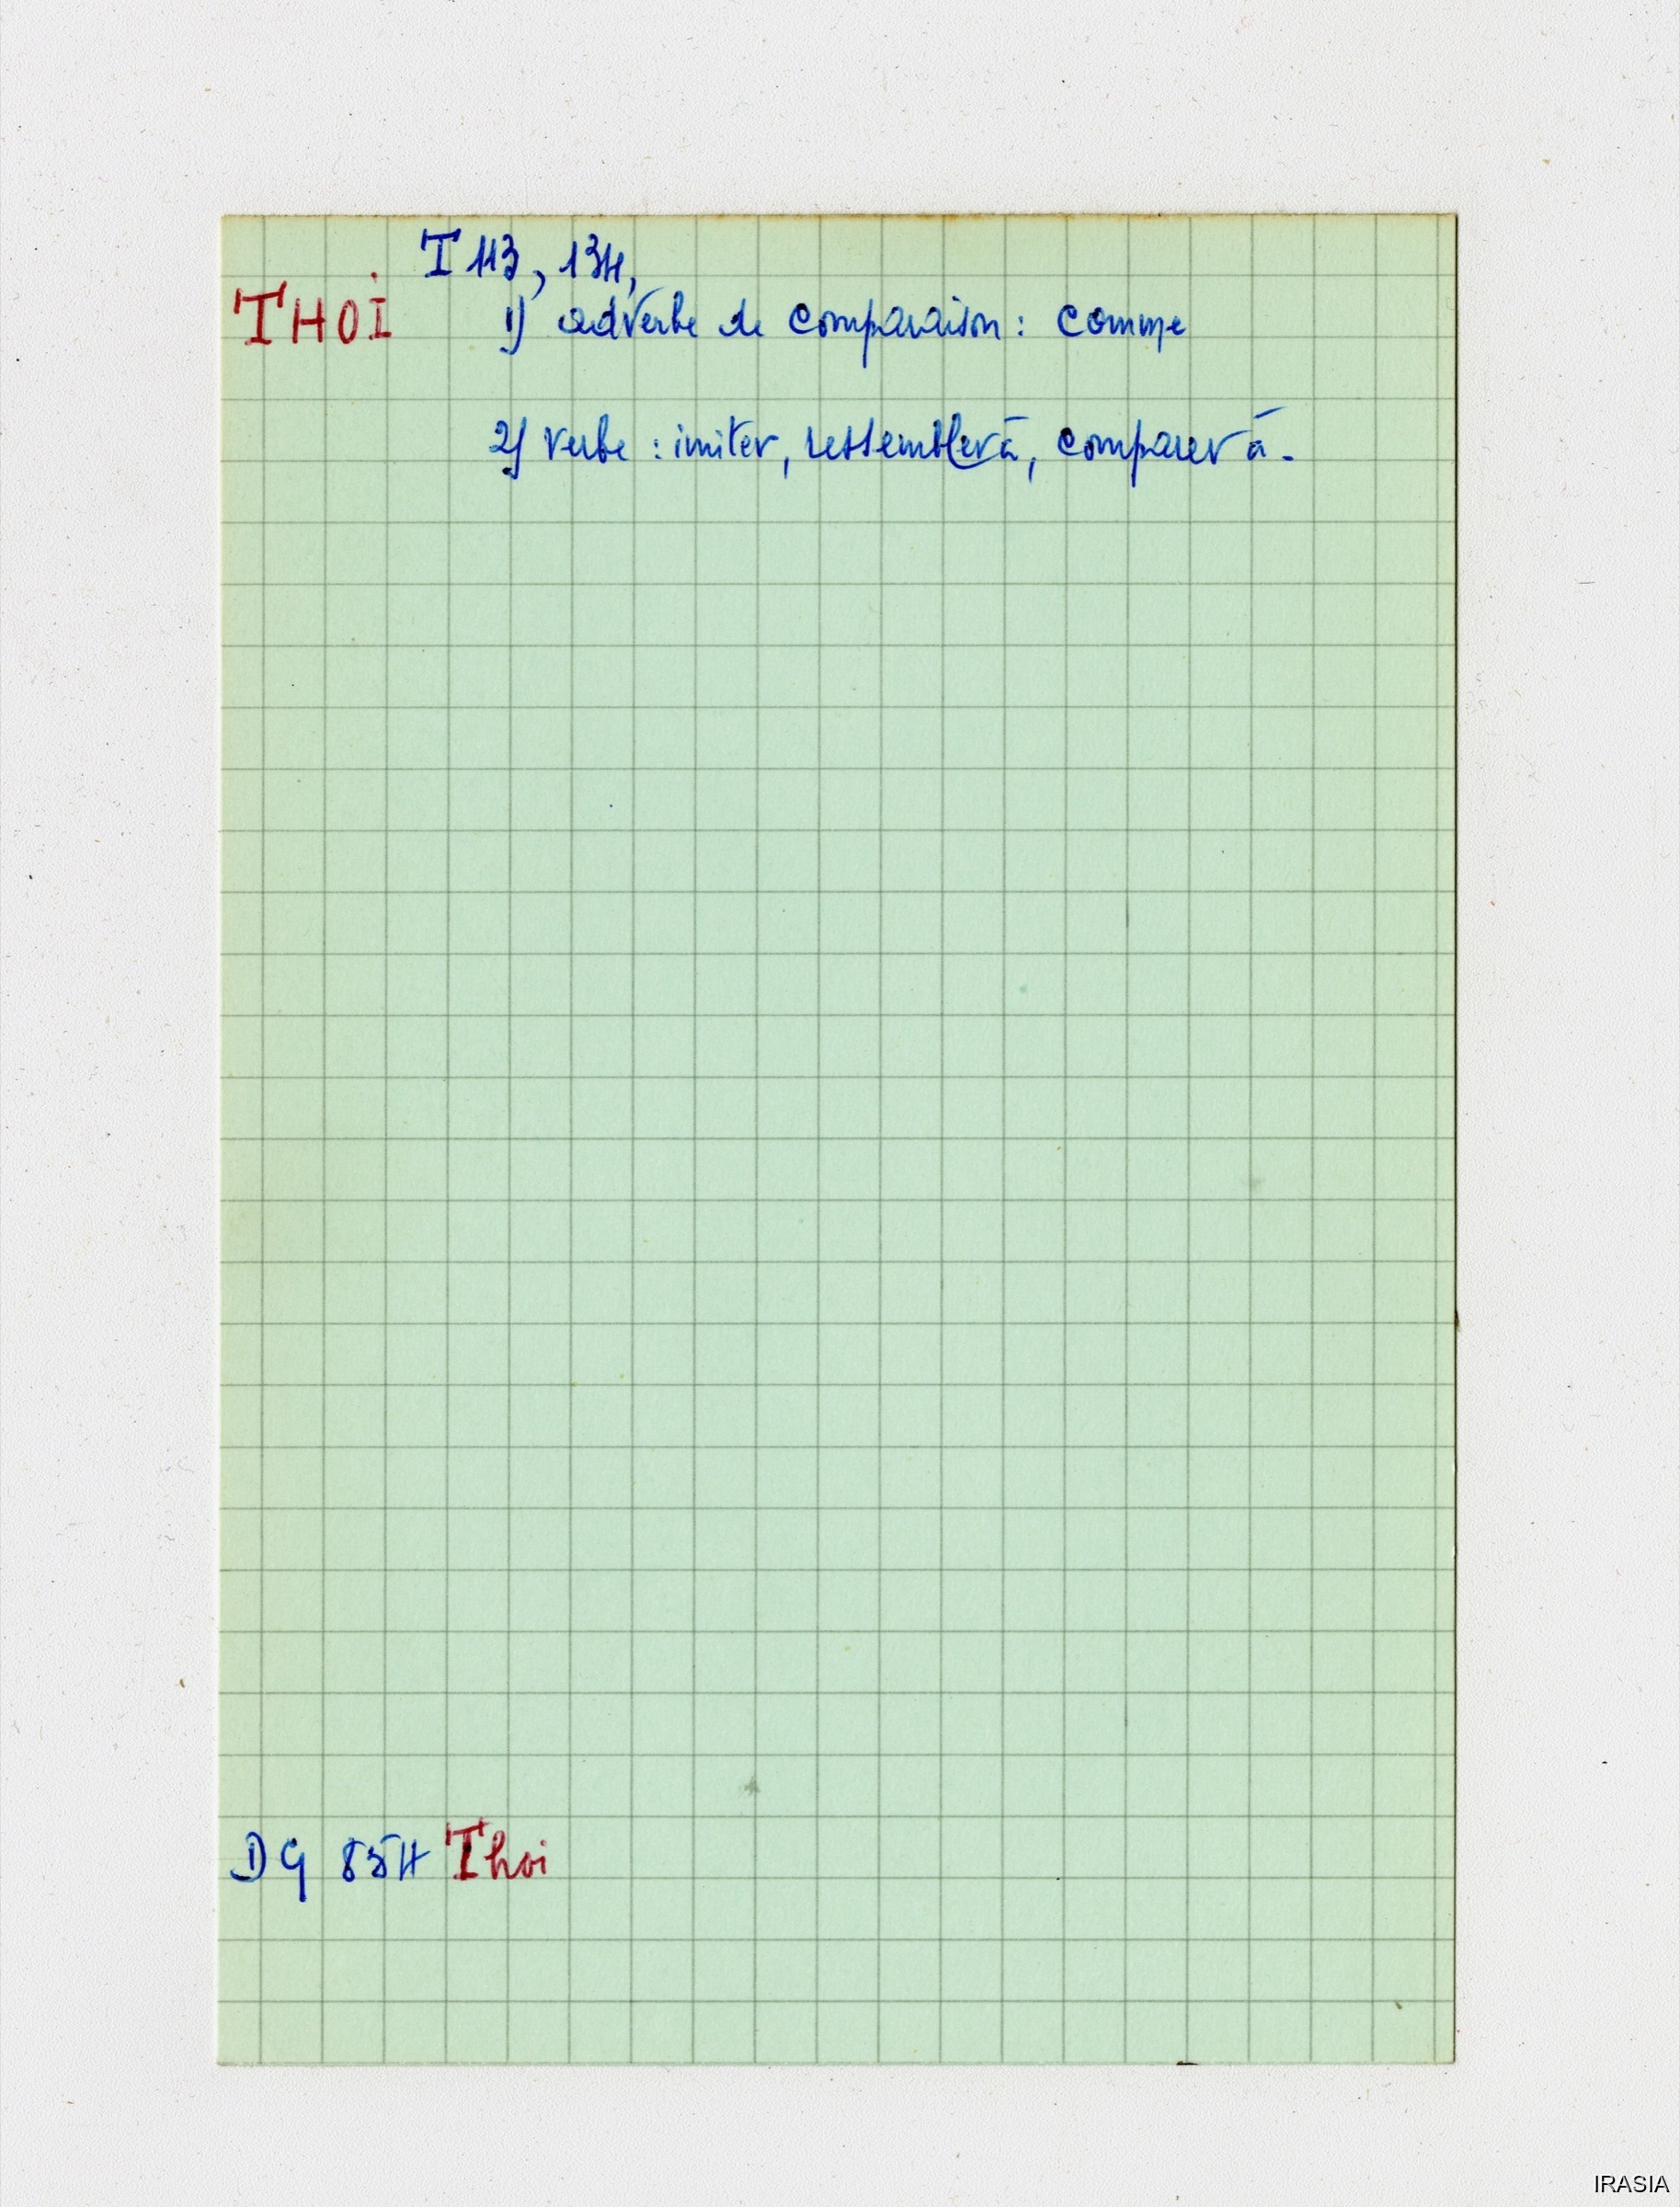 I 113, 134,
THOI 1) adverbe de comparaison : comme
2) verbe : imiter, ressembler à, comparer à.
DG 854 Thoi
IRASIA